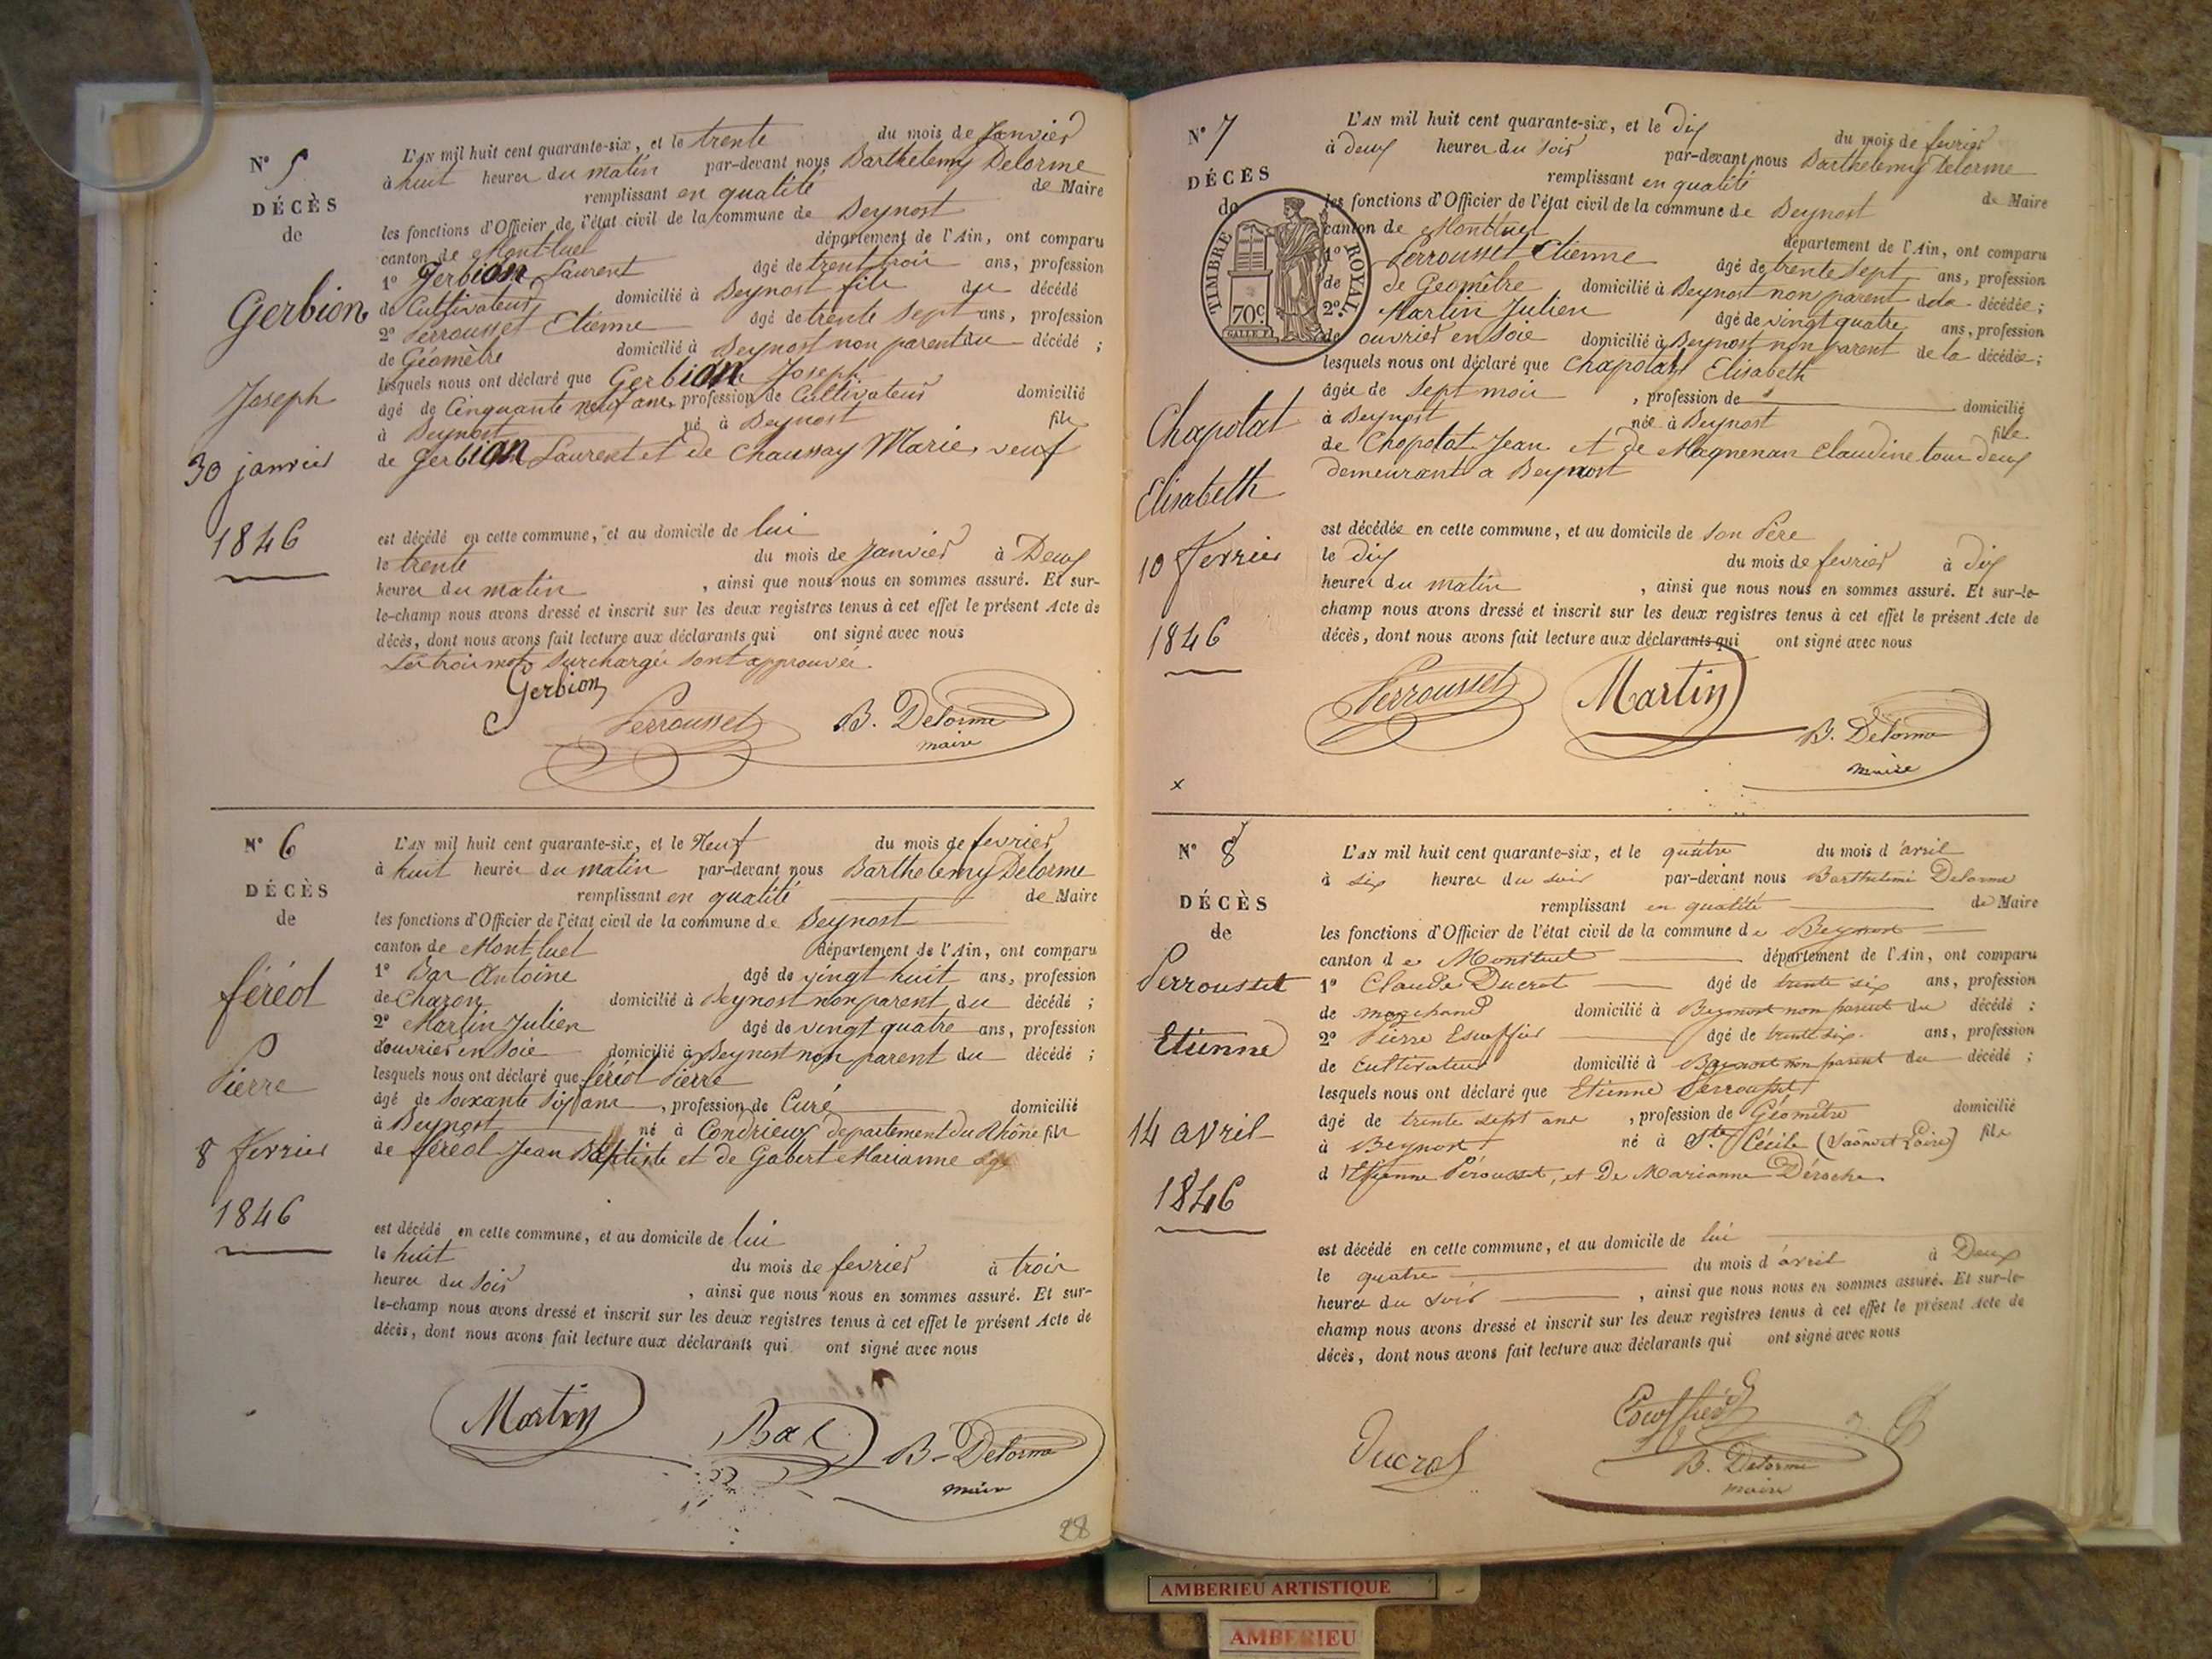 N° 5
DÉCÈS
de
Gerbion
Joseph
30 janvier
1846
L'AN mil huit cent quarante-six, et le trente du mois de Janvier
à huit heures du matin par-devant nous Barthelemy Delorme
remplissant en qualité de Maire
les fonctions d'Officier de l'état civil de la commune de Beynost
canton de Mont-luel département de l'Ain, ont comparu
1° Gerbion Laurent âgé de trent trois ans, profession
de Cultivateur domicilié à Beynost fils du décédé
2° Perrousset Etienne âgé de trente Sept ans, profession
de Géomètre domicilié à Beynost non parent du décédé ;
lesquels nous ont déclaré que Gerbion Joseph
âgé de Cinquante neuf ans, profession de Cultivateur domicilié
à Beynost né à Beynost fils
de Gerbion Laurent et de Chaussay Marie, veuf
est décédé en cette commune, et au domicile de lui
le trente du mois de Janvier à Deux
heures du matin , ainsi que nous nous en sommes assuré. Et sur-
le-champ nous avons dressé et inscrit sur les deux registres tenus à cet effet le présent Acte de
décès, dont nous avons fait lecture aux déclarants qui ont signé avec nous
Les trois mots Surchargés sont approuvés.
Gerbion
Perrousset
B. Delorme
maire
N° 6
DÉCÈS
de
féréol
Pierre
8 fevrier
1846
L'AN mil huit cent quarante-six, et le Neuf du mois de fevrier
à huit heures du matin par-devant nous Barthelemy Delorme
remplissant en qualité de Maire
les fonctions d'Officier de l'état civil de la commune de Beynost
canton de Mont luel département de l'Ain, ont comparu
1° Bar Antoine âgé de vingt huit ans, profession
de Charon domicilié à Beynost non parent du décédé ;
2° Martin Julien âgé de vingt quatre ans, profession
d'ouvrier en Soie domicilié à Beynost non parent du décédé ;
lesquels nous ont déclaré que féréol Pierre
âgé de Soixante Six ans , profession de Curé domicilié
à Beynost né à Condrieux departement du Rhône fils
de féréol Jean Baptiste et de Gabert Marianne
est décédé en cette commune, et au domicile de lui
le huit du mois de fevrier à trois
heures du Soir , ainsi que nous nous en sommes assuré. Et sur-
le-champ nous avons dressé et inscrit sur les deux registres tenus à cet effet le présent Acte de
décès, dont nous avons fait lecture aux déclarants qui ont signé avec nous
Martin
Bar
B. Delorme
maire
28
N° 7
DÉCÈS
de
TIMBRE ROYAL
70c.
Chapolat
Elisabeth
10 Fevrier
1846
L'AN mil huit cent quarante-six, et le dix du mois de fevrier
à deux heures du Soir par-devant nous Barthelemy Delorme
remplissant en qualité de Maire
les fonctions d'Officier de l'état civil de la commune de Beynost
canton de Montluel département de l'Ain, ont comparu
1° Perrousset Etienne âgé de trente Sept ans, profession
de de Geomètre domicilié à Beynost non parent de la décédée ;
2° Martin Julien âgé de vingt quatre ans, profession
de ouvrier en Soie domicilié à Beynost non parent de la décédée ;
lesquels nous ont déclaré que Chapolat Elisabeth
âgée de Sept mois , profession de domicilié
à Beynost née à Beynost fille
de Chapolat Jean et de Magnenan Claudine tous deux
demeurant a Beynost
est décédée en cette commune, et au domicile de Son Père
le dix du mois de fevrier à dix
heures du matin , ainsi que nous nous en sommes assuré. Et sur-le-
champ nous avons dressé et inscrit sur les deux registres tenus à cet effet le présent Acte de
décès, dont nous avons fait lecture aux déclarants qui ont signé avec nous
Perrousset
Martin
B. Delorme
maire
x
N° 8
DÉCÈS
de
Perrousset
Etienne
14 avril
1846
L'AN mil huit cent quarante-six, et le quatre du mois d'avril
à six heures du soir par-devant nous Barthelemi Delorme
remplissant en qualité de Maire
les fonctions d'Officier de l'état civil de la commune de Beynost
canton de Montluel département de l'Ain, ont comparu
1° Claude Ducrot âgé de trente six ans, profession
de marchand domicilié à Beynost non parent du décédé ;
2° Pierre Escoffier âgé de trente six ans, profession
de cultivateur domicilié à Beynost non parent du décédé ;
lesquels nous ont déclaré que Etienne Perrousset
âgé de trente sept ans , profession de Géomètre domicilié
à Beynost né à Ste Cécile (Saône et Loire) fils
d'Etienne Pérousset, et De Marianne Déroche
est décédé en cette commune, et au domicile de lui
le quatre du mois d'avril à Deux
heures du soir , ainsi que nous nous en sommes assuré. Et sur-le-
champ nous avons dressé et inscrit sur les deux registres tenus à cet effet le présent Acte de
décès, dont nous avons fait lecture aux déclarants qui ont signé avec nous
Ducrot
Escoffier
B. Delorme
maire
AMBERIEU ARTISTIQUE
AMBERIEU